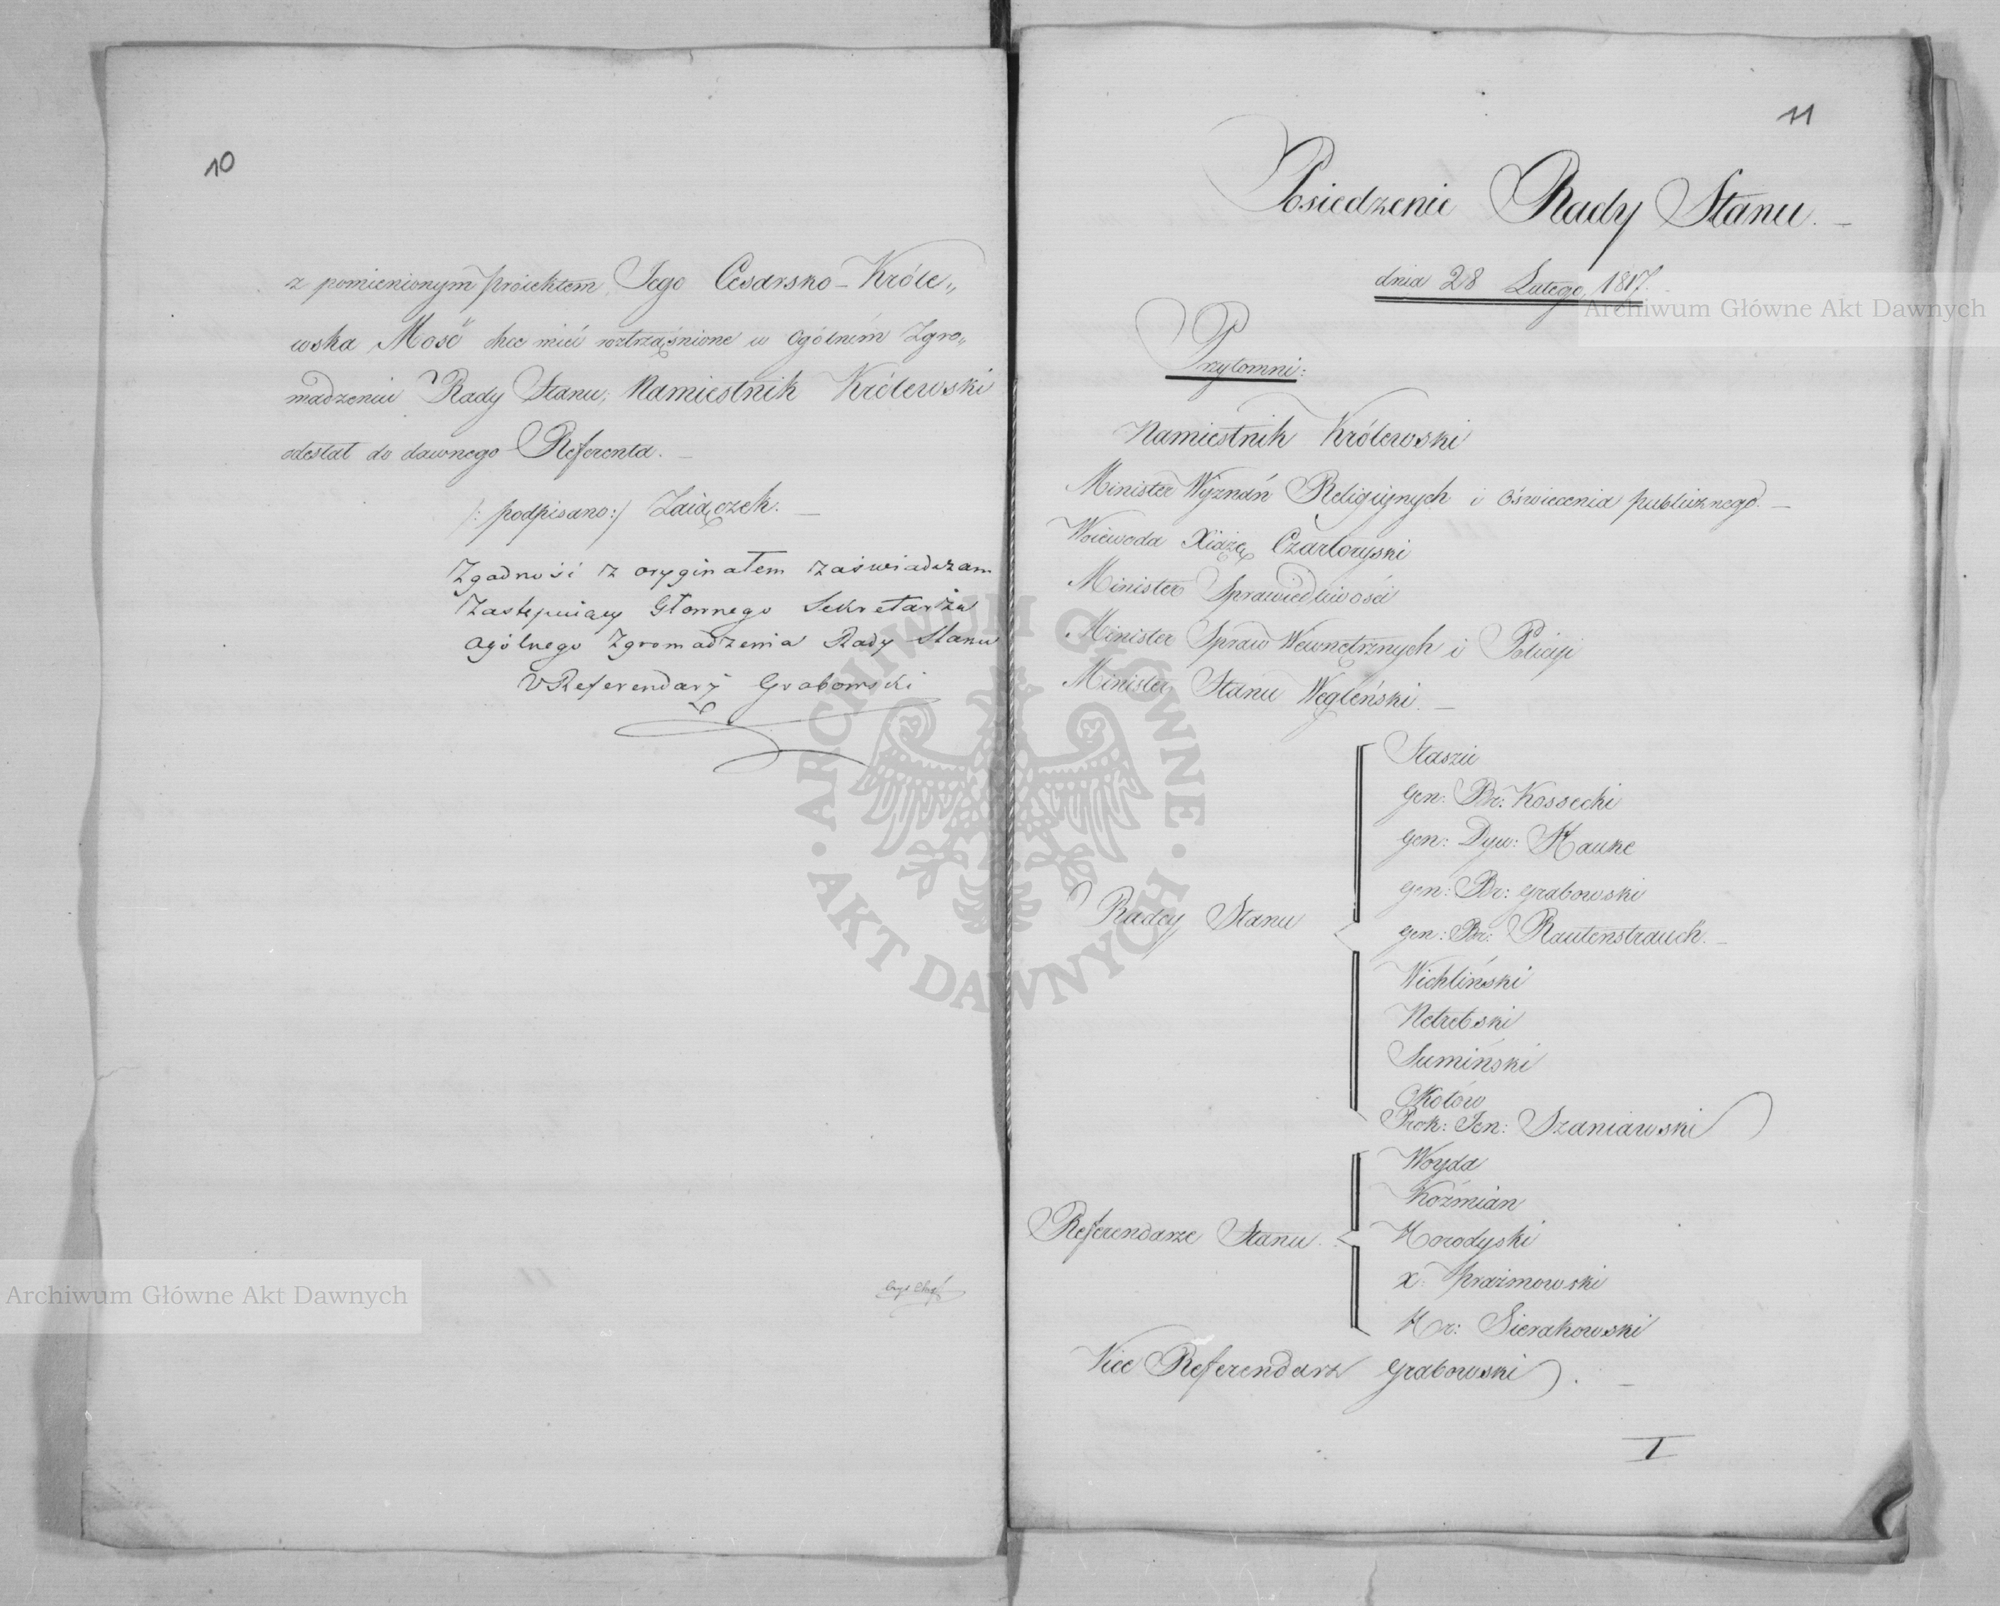 10
z pomienionym proiektem Jego Cesarsko-Króle„
wska Mość chce mieć roztrząśnione w Ogólném Zgro„
madzeniu Rady Stanu, Namiestnik Królewski
odesłał do dawnego Referenta. —
/: podpisano:/ Zaiączek. —
Zgodność z oryginałem zaświadczam
Zastępuiący Głównego Sekretarza
Ogólnego Zgromadzenia Rady Stanu
VReferendarz Grabowski
11
Posiedzenie Rady Stanu. —
dnia 28 Lutego, 1817. —
Przytomni:
Namiestnik Królewski
Minister Wyznań Religiynych i Oświecenia publicznego. —
Woiewoda Xiążę Czartoryski
Minister Sprawiedliwości
Minister Spraw Wewnętrznych i Policyi
Minister Stanu Węgleński. —
Staszic
Gen: Br: Kossecki
Gen: Dyw: Hauke
Gen: Br: Grabowski
Radcy Stanu
Gen: Br: Rautenstrauch. —
Wichliński
Netrebski
Sumiński
Okołów
Prok: Jen: Szaniawski
Woyda
Koźmian
Referendarze Stanu.
Horodyski
X: Prażmowski
Hr: Sierakowski
Vice Referendarz Grabowski. —
I
Archiwum Główne Akt Dawnych
Archiwum Główne Akt Dawnych
ARCHIWUM GŁÓWNE · AKT DAWNYCH ·